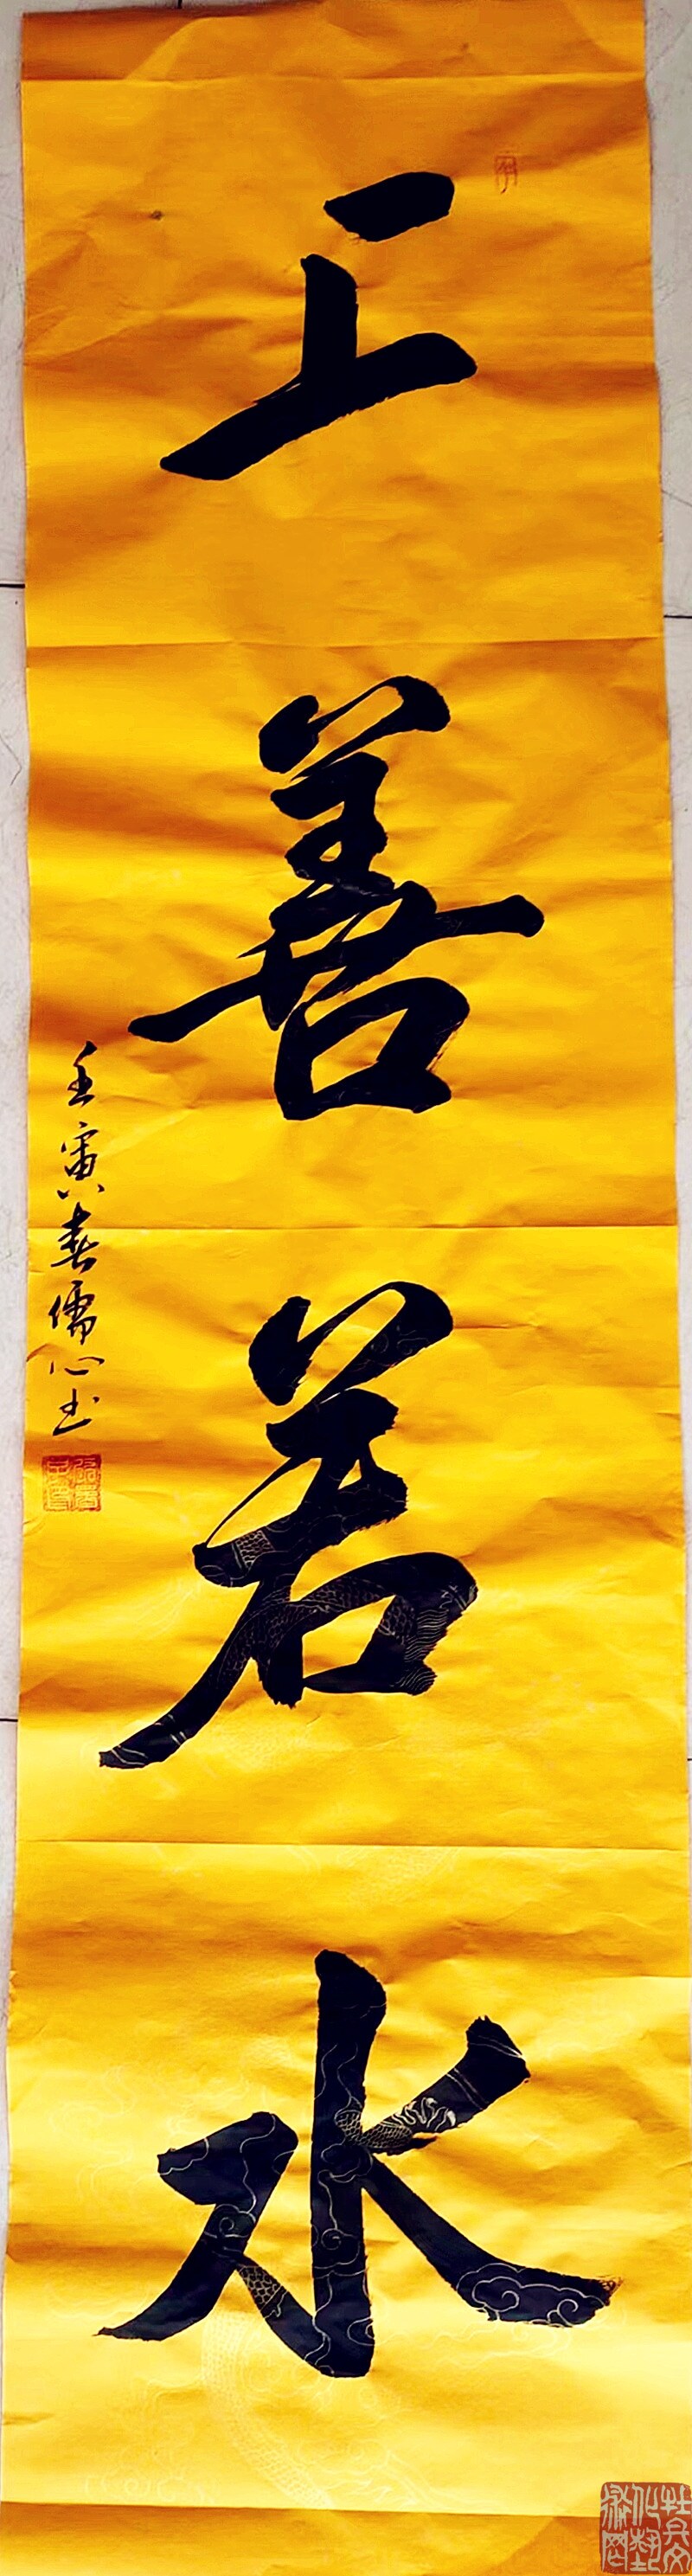 上善若水
壬寅春儒心书